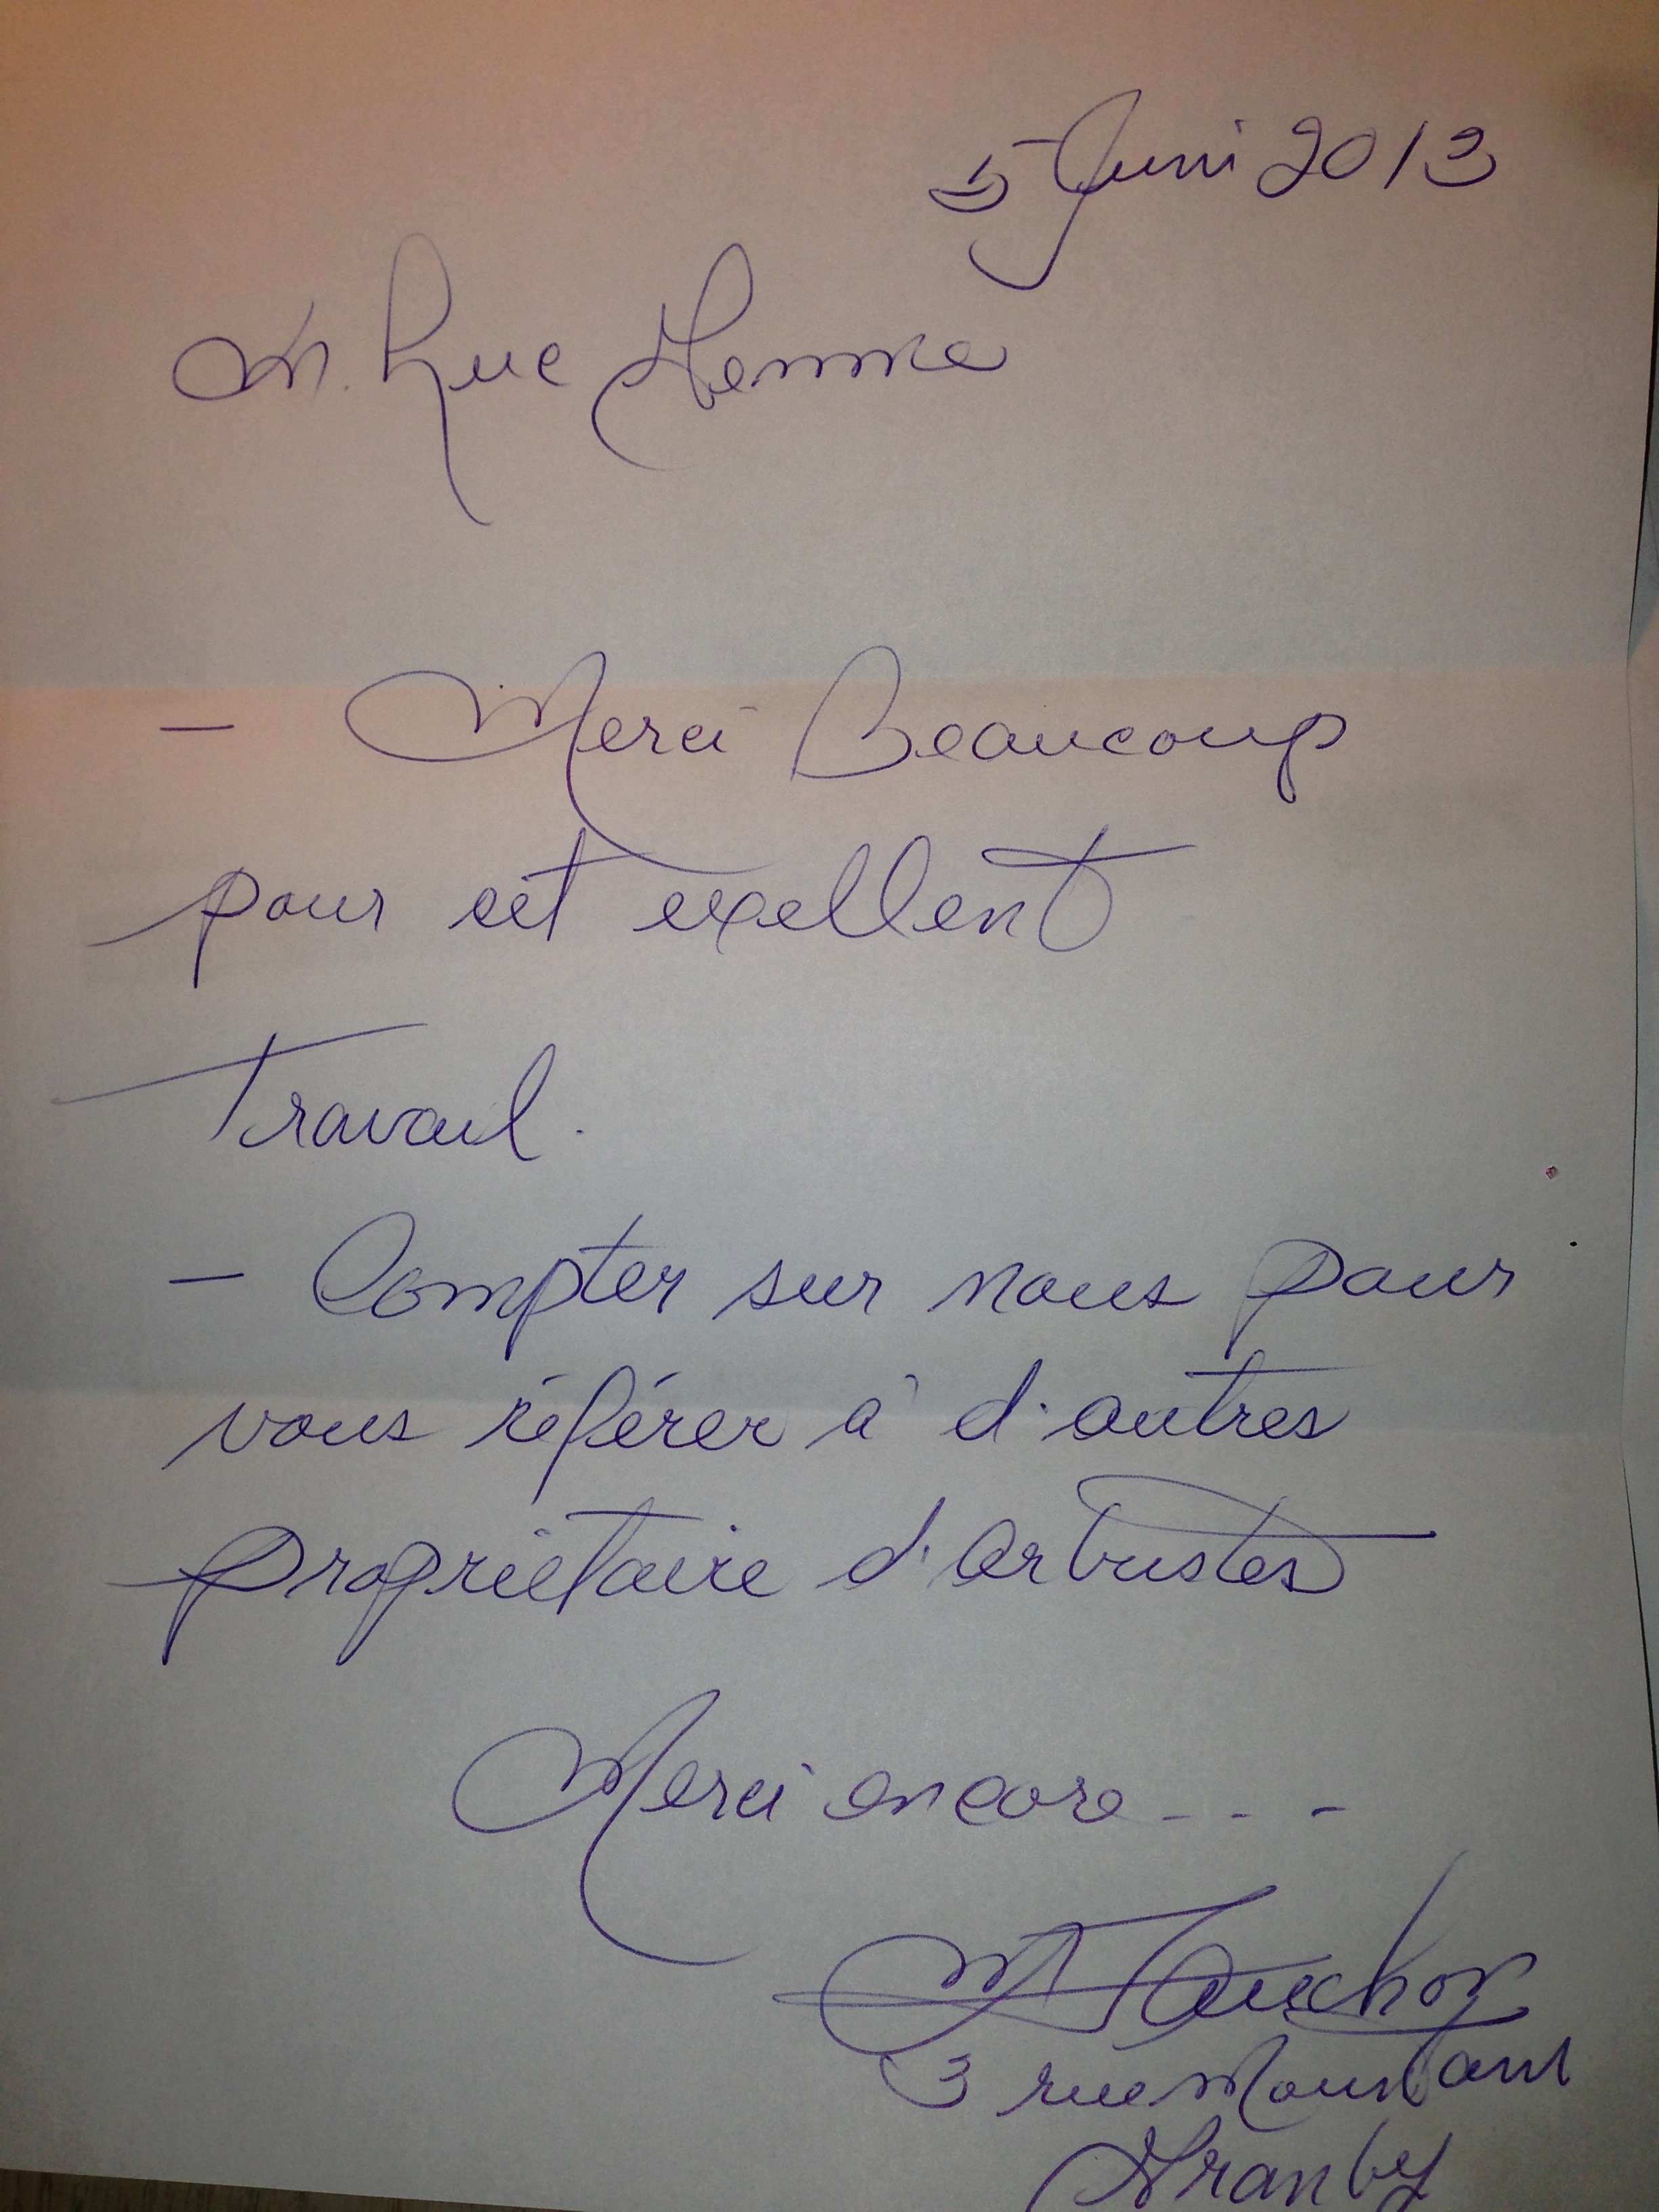 5 Juin 2013
M. Luc
- Merci Beaucoup
pour cet exellent
Travail.
- Compter sur nous pour
vous référer à d'autres
propriétaire d'arbustes
Merci encore...
3 rue
Granby